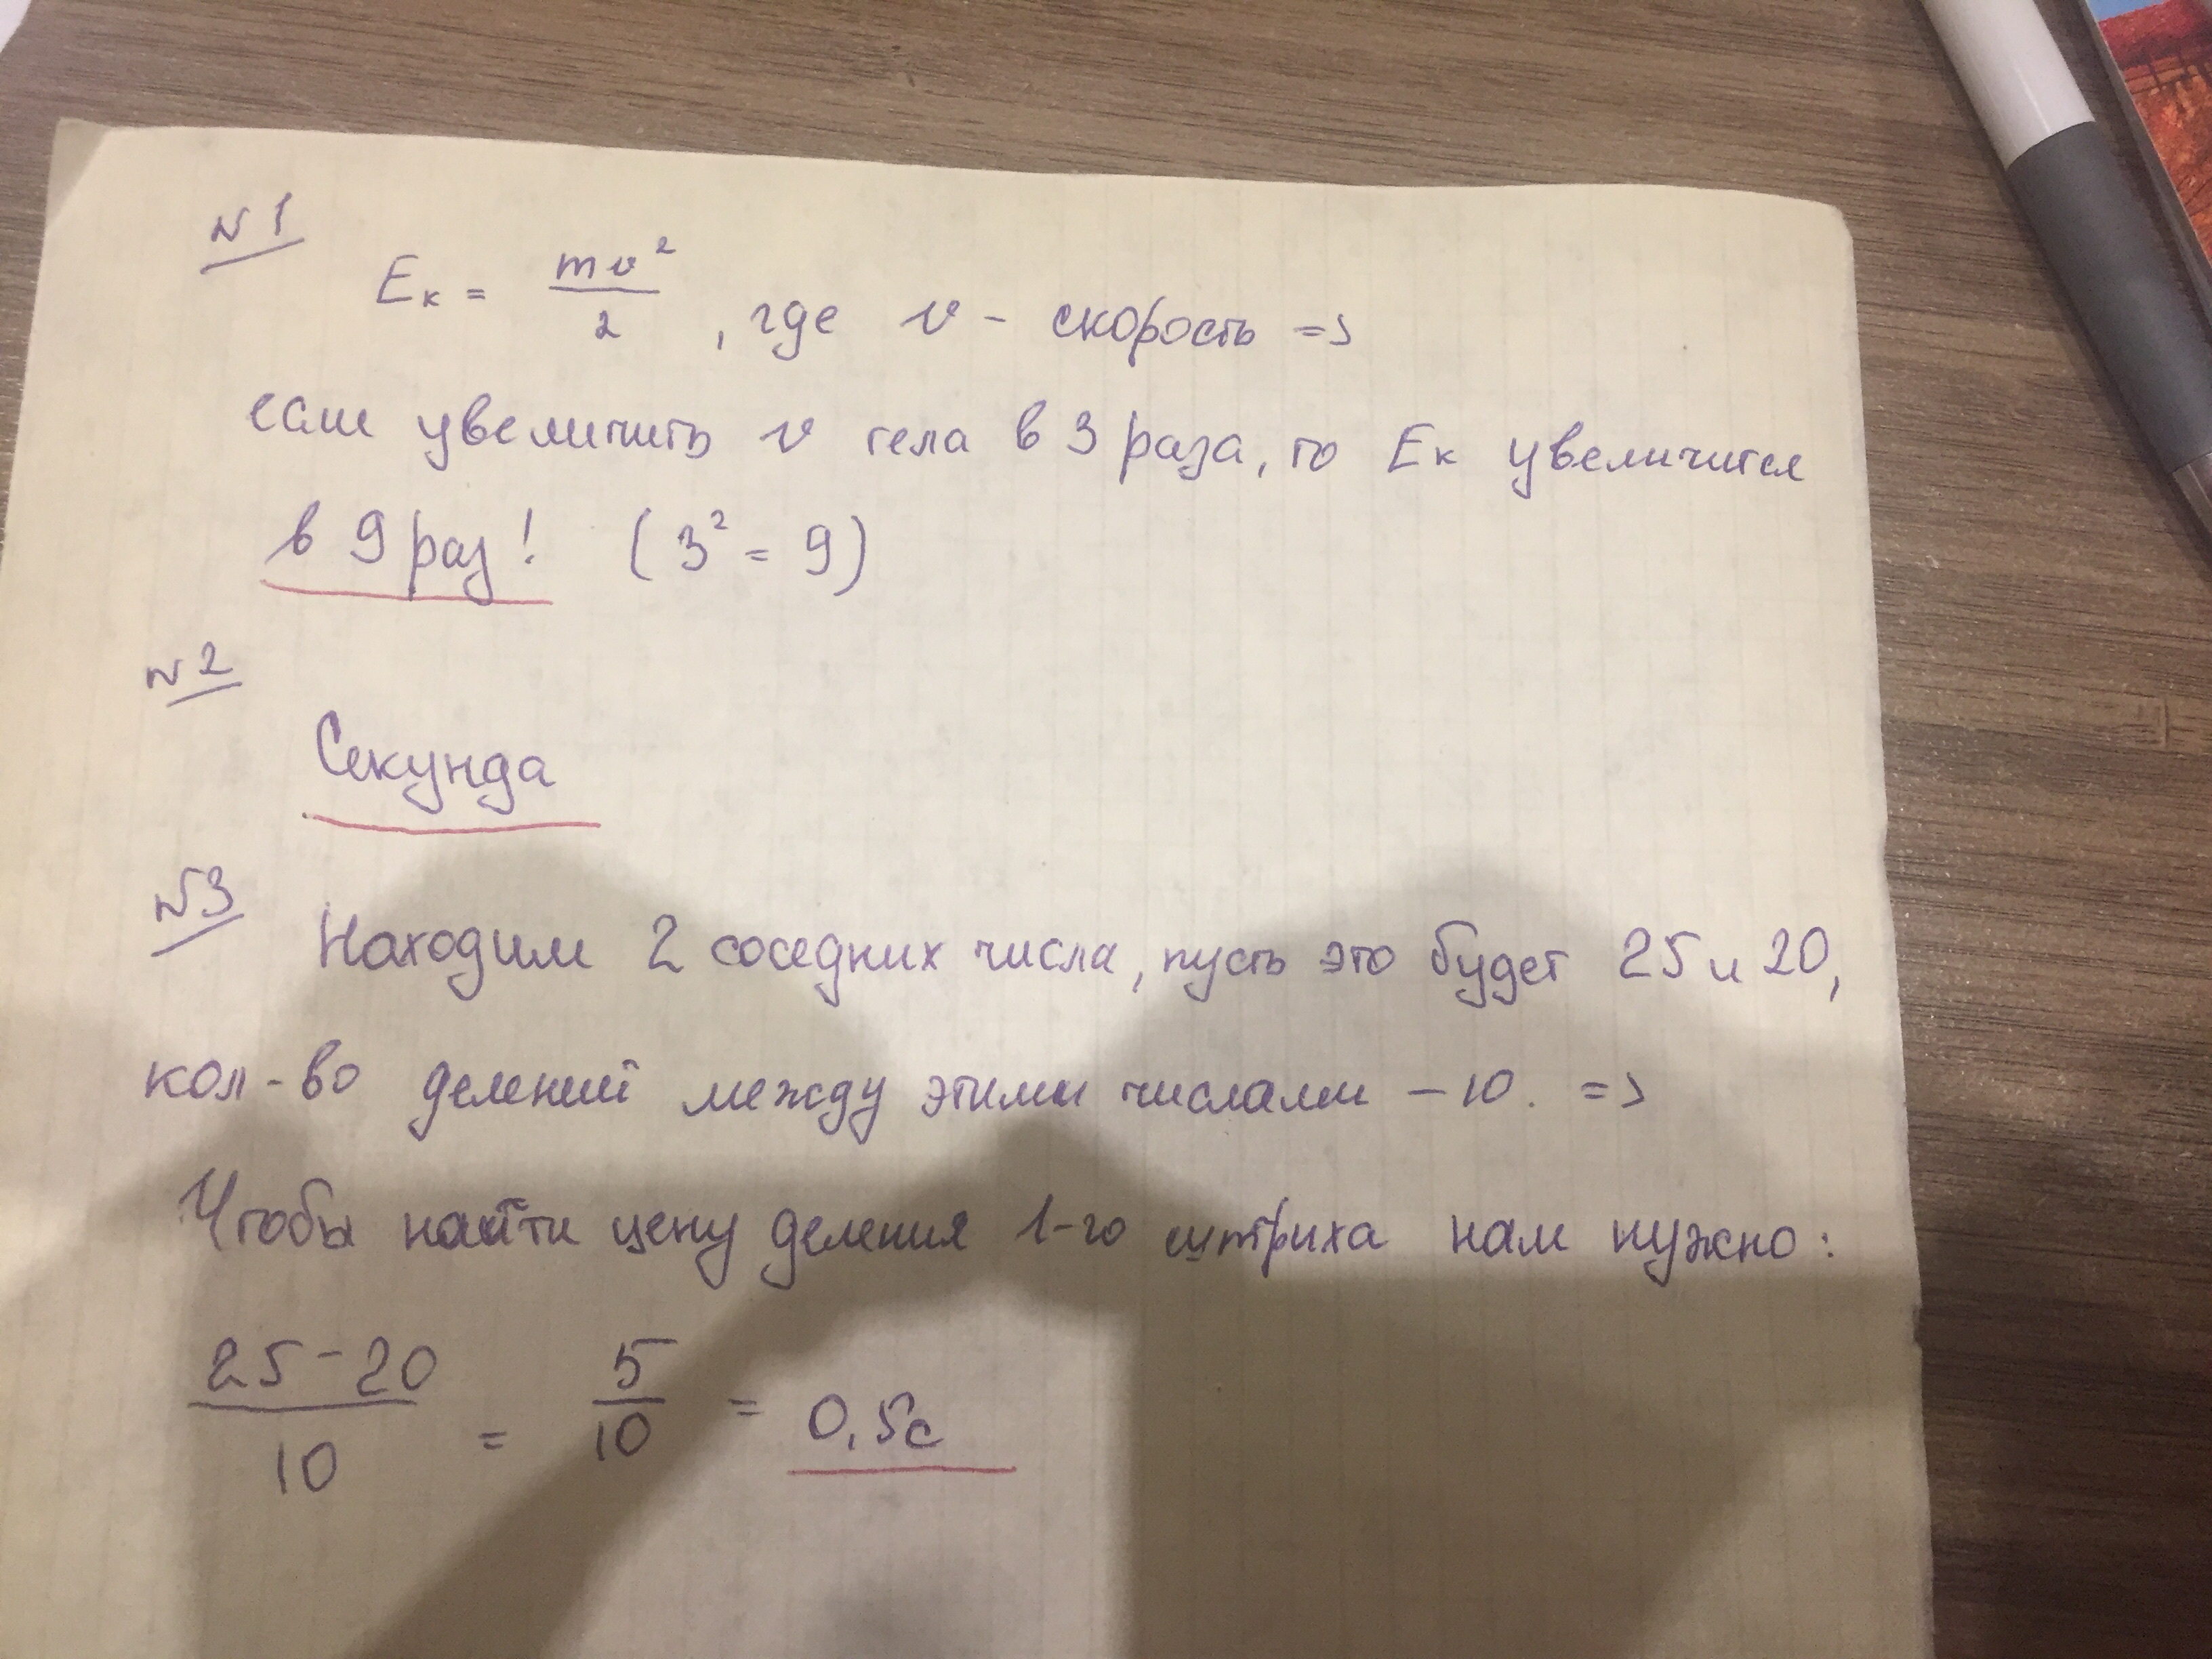 №1
Eк = mv²/2, где v - скорость =>
если увеличить v тела в 3 раза, то Eк увеличится
в 9 раз! (3² = 9)
№2
Секунда
№3 Находим 2 соседних числа, пусть это будет 25 и 20,
кол-во делений между этими числами - 10. =>
Чтобы найти цену деления 1-го штриха нам нужно:
25-20/10 = 5/10 = 0,5с